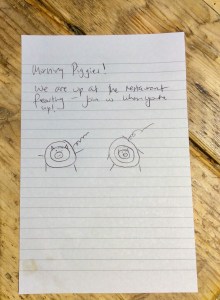 Morning Piggies!
We are up at the restaurant
- join us when you're
up!